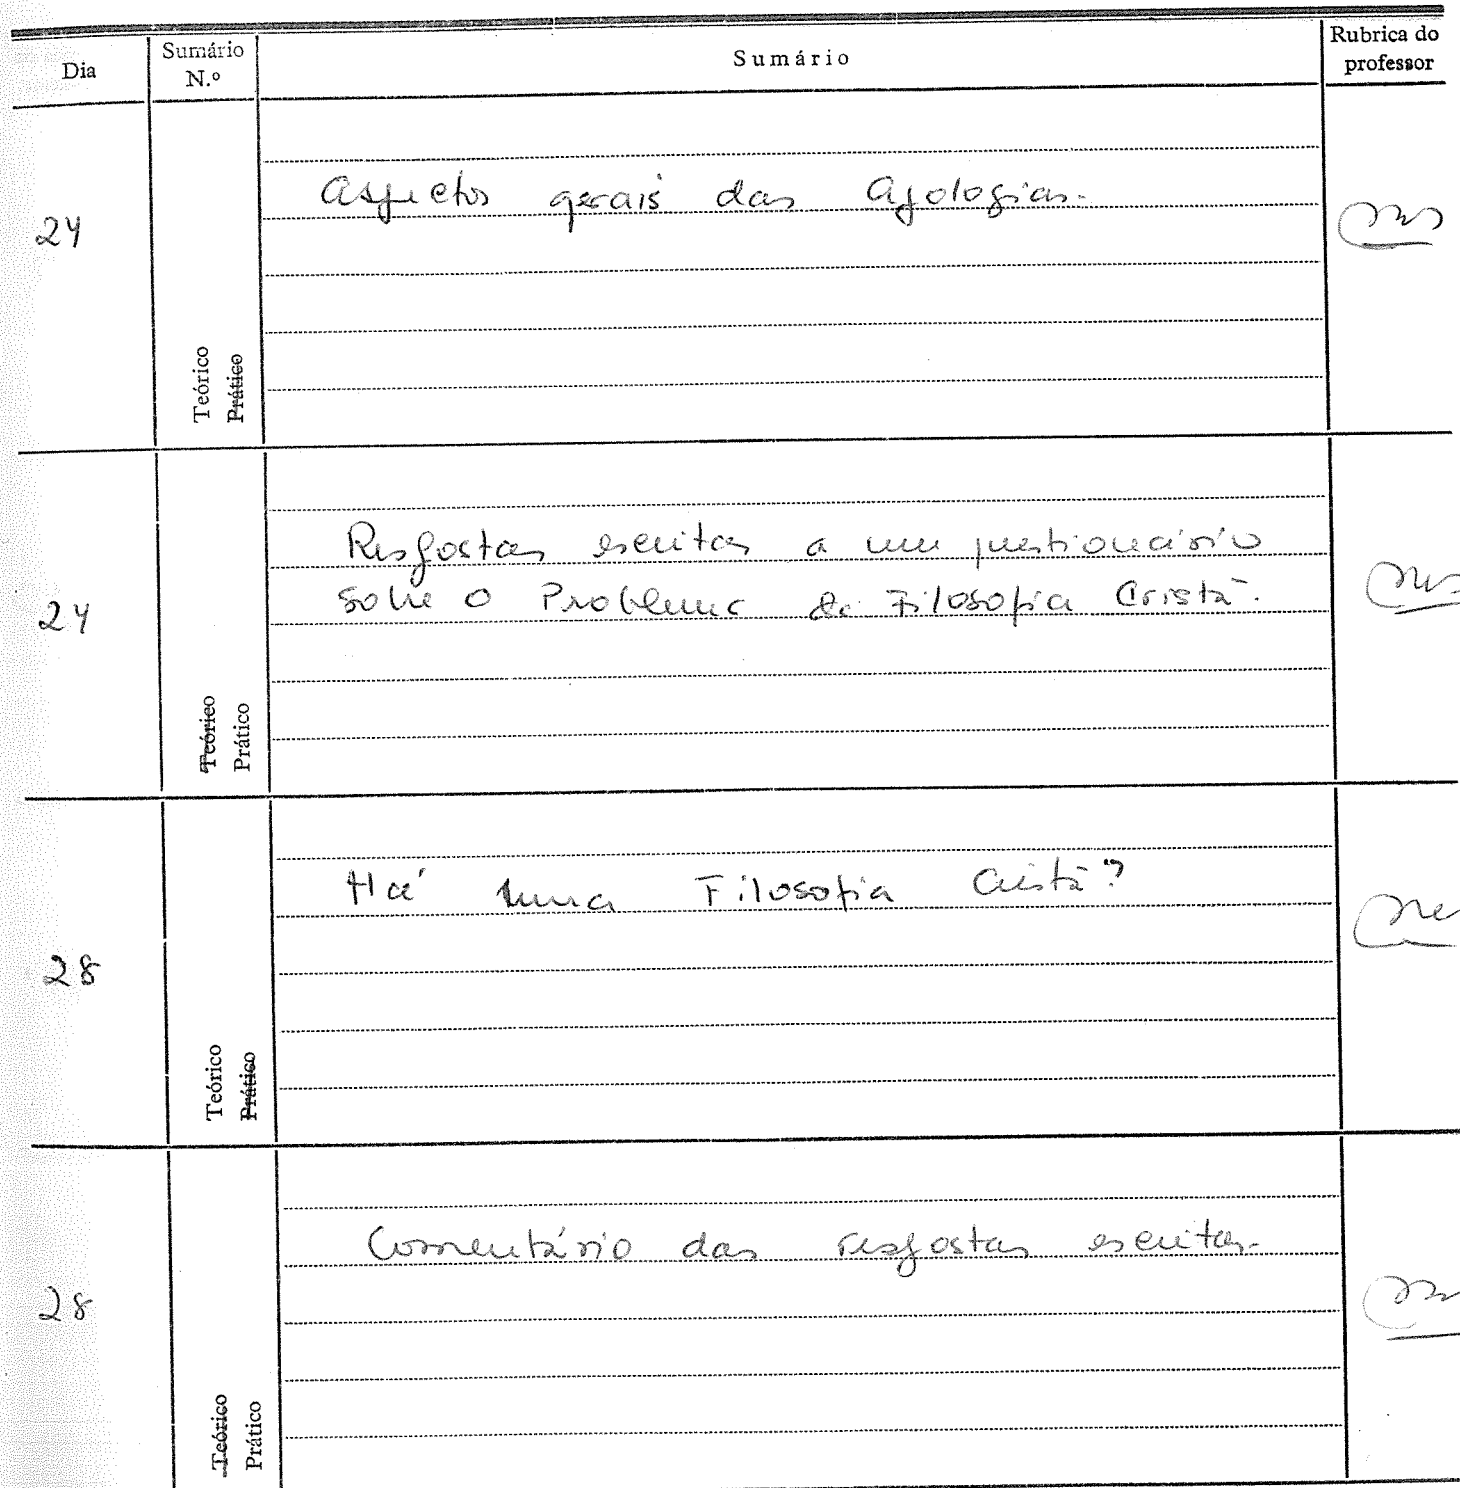 Dia
Sumário N.º
Sumário
Rubrica do professor
24
Teórico
Prático
Aspectos gerais das Apologias.
24
Teórico
Prático
Respostas escritas a um questionário
sobre o Problema da Filosofia Cristã.
28
Teórico
Prático
Há uma Filosofia Cristã?
28
Teórico
Prático
Comentário das respostas escritas.